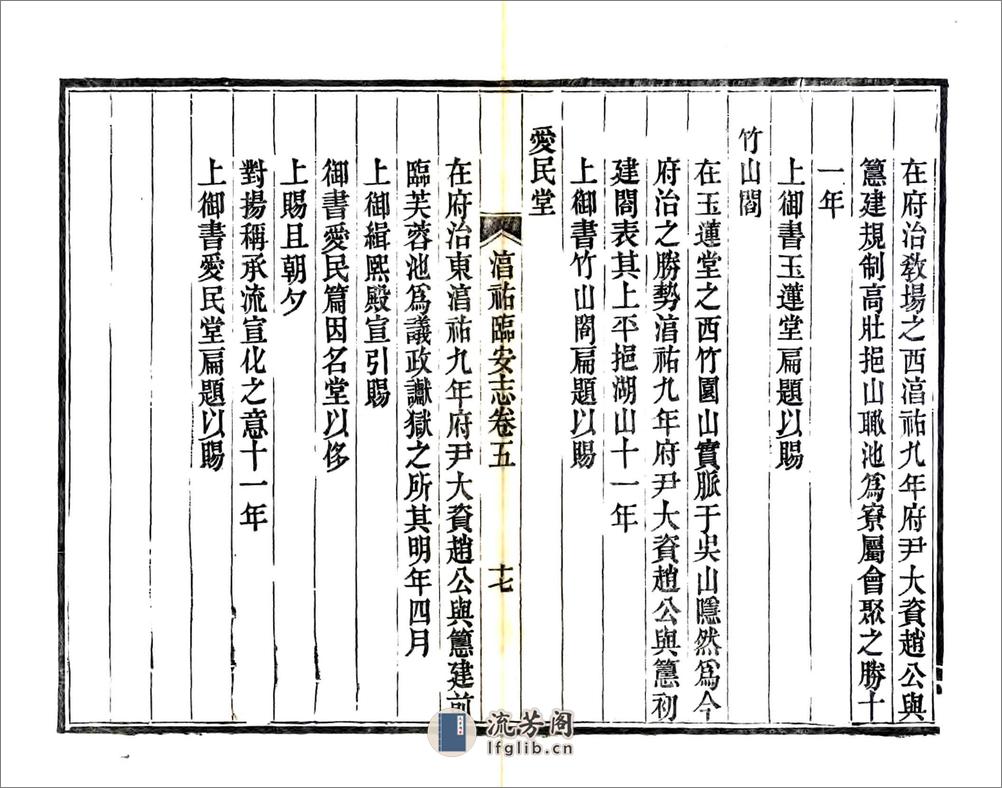 在府治敎場之西湻祐九年府尹大資趙公與
𥲤建規制高壯挹山瞰池爲寮屬會聚之勝十
一年
上御書玉蓮堂扁題以賜
竹山閣
在玉蓮堂之西竹園山實脈于吳山隱然爲今
府治之勝勢湻祐九年府尹大資趙公與𥲤初
建閣表其上平挹湖山十一年
上御書竹山閣扁題以賜
愛民堂
湻祐臨安志卷五
十七
在府治東湻祐九年府尹大資趙公與𥲤建前
臨芙蓉池爲議政讞獄之所其明年四月
上御緝熙殿宣引賜
御書愛民篇因名堂以侈
上賜且朝夕
對揚稱承流宣化之意十一年
上御書愛民堂扁題以賜
流芳阁
lfglib.cn